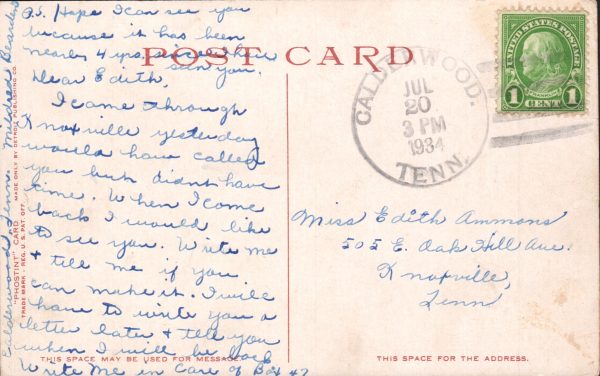 P.S. Hope I can see you
because it has been
nearly 4 yrs. since I have
seen you.
POST CARD
Dear Edith,
I came through
Knoxville yesterday
would have called
you but didn't have
time. When I come
back I would like
to see you. Write me
& tell me if you
can make it. I will
have to write you a
letter later & tell you
when I will be back
Write Me in Care of Box 42
Calderwood, Tenn. Mildred Bearden
"PHOSTINT" CARD. MADE ONLY BY DETROIT PUBLISHING CO.
TRADE MARK - REG. U.S. PAT. OFF.
THIS SPACE MAY BE USED FOR MESSAGE.
CALDERWOOD.
JUL
20
3 PM
1934
TENN.
UNITED STATES POSTAGE
FRANKLIN
1 CENT 1
Miss Edith Ammons
505 E. Oak Hill Ave.
Knoxville,
Tenn
THIS SPACE FOR THE ADDRESS.